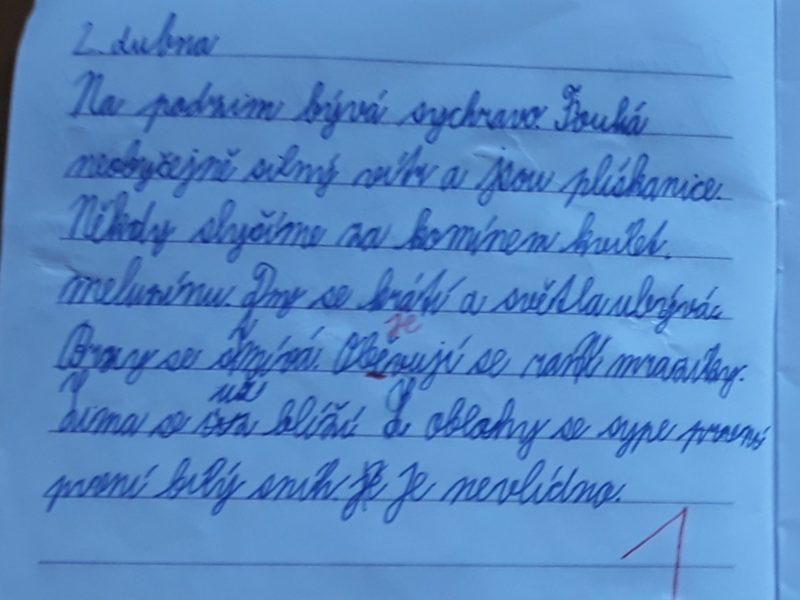 2. dubna
Na podzim bývá sychravo. Fouká
neobyčejně silný vítr a jsou plískanice.
Někdy slyšíme za komínem kvílet
meluzínu. Dny se krátí a světla ubývá.
Brzy se stmívá. Obevují se ranní mrazíky.
je
Zima se už blíží. Z oblohy se sype
první bílý sníh. Je nevlídno.
1